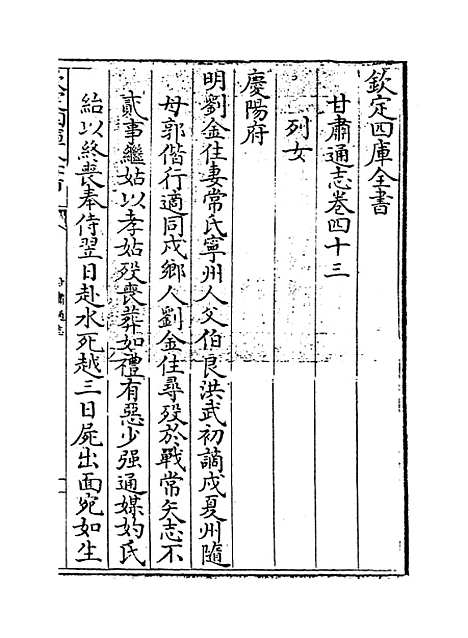 欽定四庫全書
甘肅通志卷四十三
列女
慶陽府
明劉金住妻常氏寧州人父伯良洪武初謫戍夏州隨
母郭偕行適同戍鄉人劉金住尋殁於戰常矢志不
貳事繼姑以孝姑殁喪葬如禮有惡少强通媒妁氏
紿以終喪奉侍翌日赴水死越三日屍出面宛如生